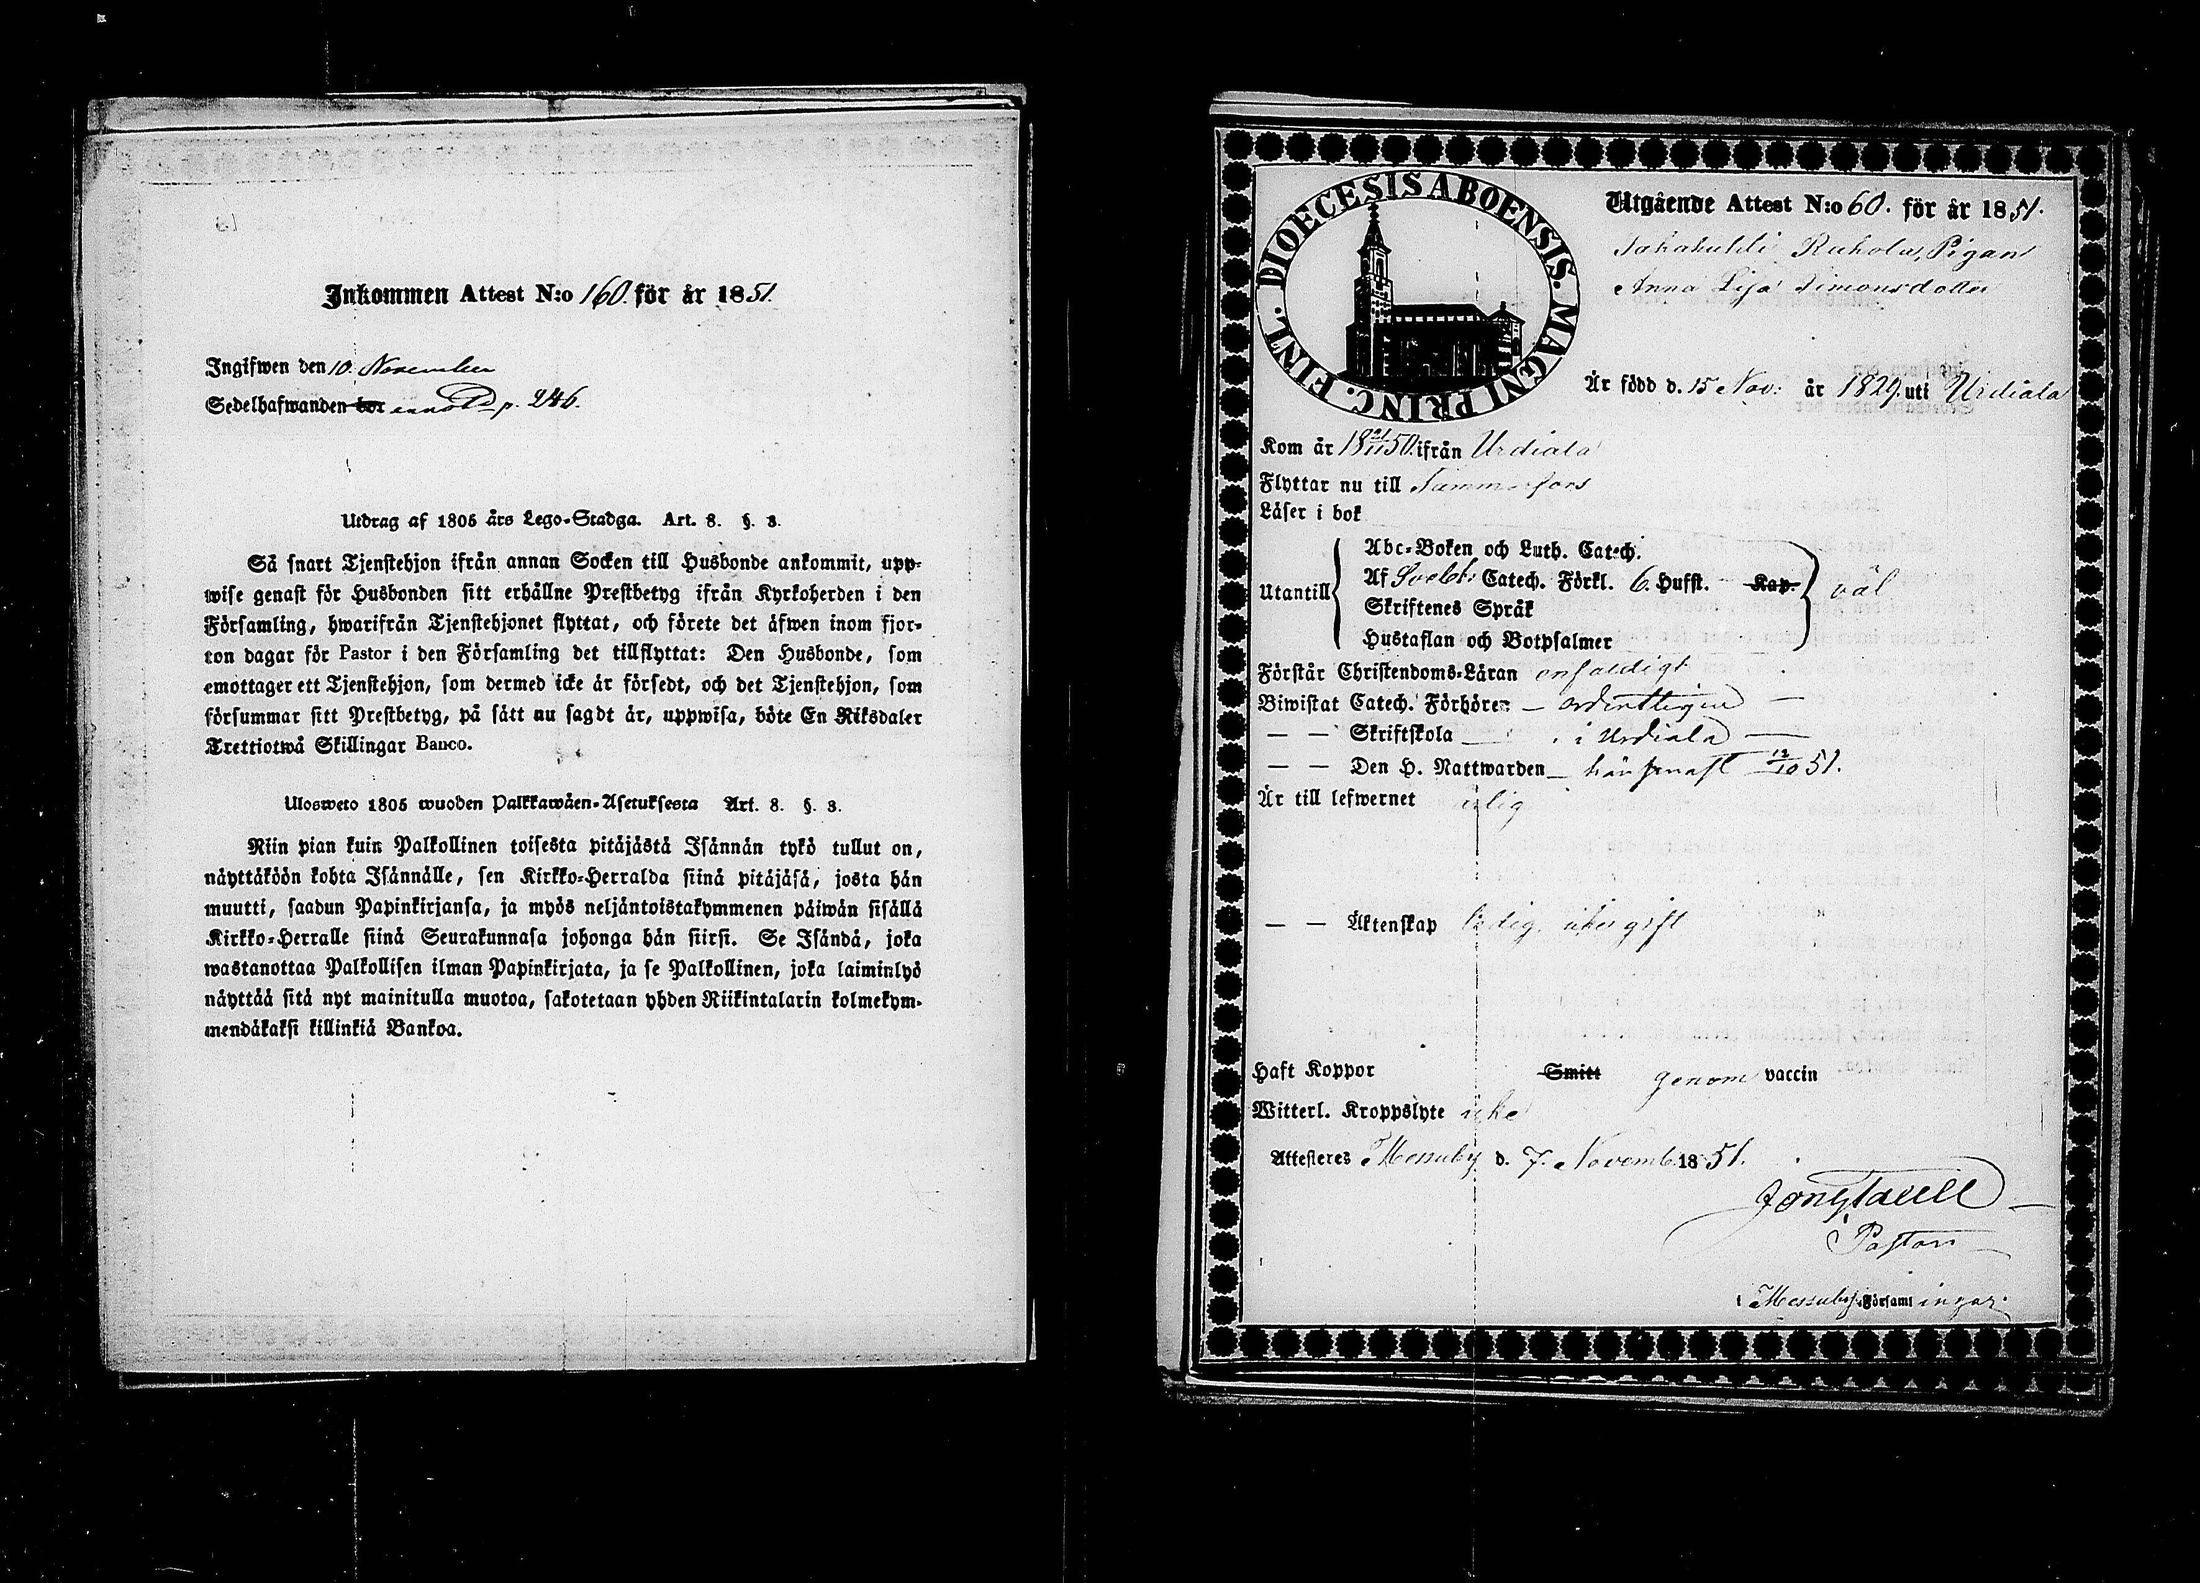 Inkommen Attest N:o 160. för år 1851.
Ingifwen den 10. November
Sedelhafwanden bor annot p. 246.
Utdrag af 1805 års Lego-Stadga. Art. 8. §. 3.
Så snart Tjenstehjon ifrån annan Socken till Husbonde ankommit, upp-
wise genast för Husbonden sitt erhållne Prestbetyg ifrån Kyrkoherden i den
Församling, hwarifrån Tjenstehjonet flyttat, och förete det äfwen inom fjor-
ton dagar för Pastor i den Församling det tillflyttat: Den Husbonde, som
emottager ett Tjenstehjon, som dermed icke är försedt, och det Tjenstehjon, som
försummar sitt Prestbetyg, på sätt nu sagdt är, uppwisa, böte En Riksdaler
Trettiotwå Skillingar Banco.
Ulosweto 1805 wuoden Palkkawäen-Asetuksesta Art. 8. §. 3.
Niin pian kuin Palkollinen toisesta pitäjästä Isännän tykö tullut on,
näyttäköön kohta Isännälle, sen Kirkko-Herralda siinä pitäjäsä, josta hän
muutti, saadun Papinkirjansa, ja myös neljäntoistakymmenen päiwän sisällä
Kirkko-Herralle siinä Seurakunnasa johonga hän siirsi. Se Isändä, joka
wastanottaa Palkollisen ilman Papinkirjata, ja se Palkollinen, joka laiminlyö
näyttää sitä nyt mainitulla muotoa, sakotetaan yhden Riikintalarin kolmekym-
mendäkaksi killinkiä Bankoa.
DIOECESIS ABOENSIS. MAGNI PRINC. FINL.
Utgående Attest N:o 60. för år 1851.
Ruhola, Pigan
Anna Lisa Simonsdotter
Är född d. 15 Nov: år 1829. uti Urdiala
Kom år 18 21/11 50. ifrån Urdiala
Flyttar nu till Tammerfors
Läser i bok
Utantill
Abc-Boken och Luth. Catech.
Af Svebi: Catech. Förkl. 6. Hufst. — Kap.
Skriftenes Språk
Hustaflan och Botpsalmer
väl
Förstår Christendoms-Läran enfaldigt
Biwistat Catech. Förhören — ordentligen —
— — Skriftskola — i Urdiala —
— — Den H. Nattwarden — här senast 12/10 51.
Är till lefwernet ärlig
— — Äktenskap ledig, utur gift
Haft Koppor Smitt genom vaccin
Witterl. Kroppslyte icke
Attesteres Messuby d. 7. Novemb. 1851.
Pastor
i Messuby Församlingar.